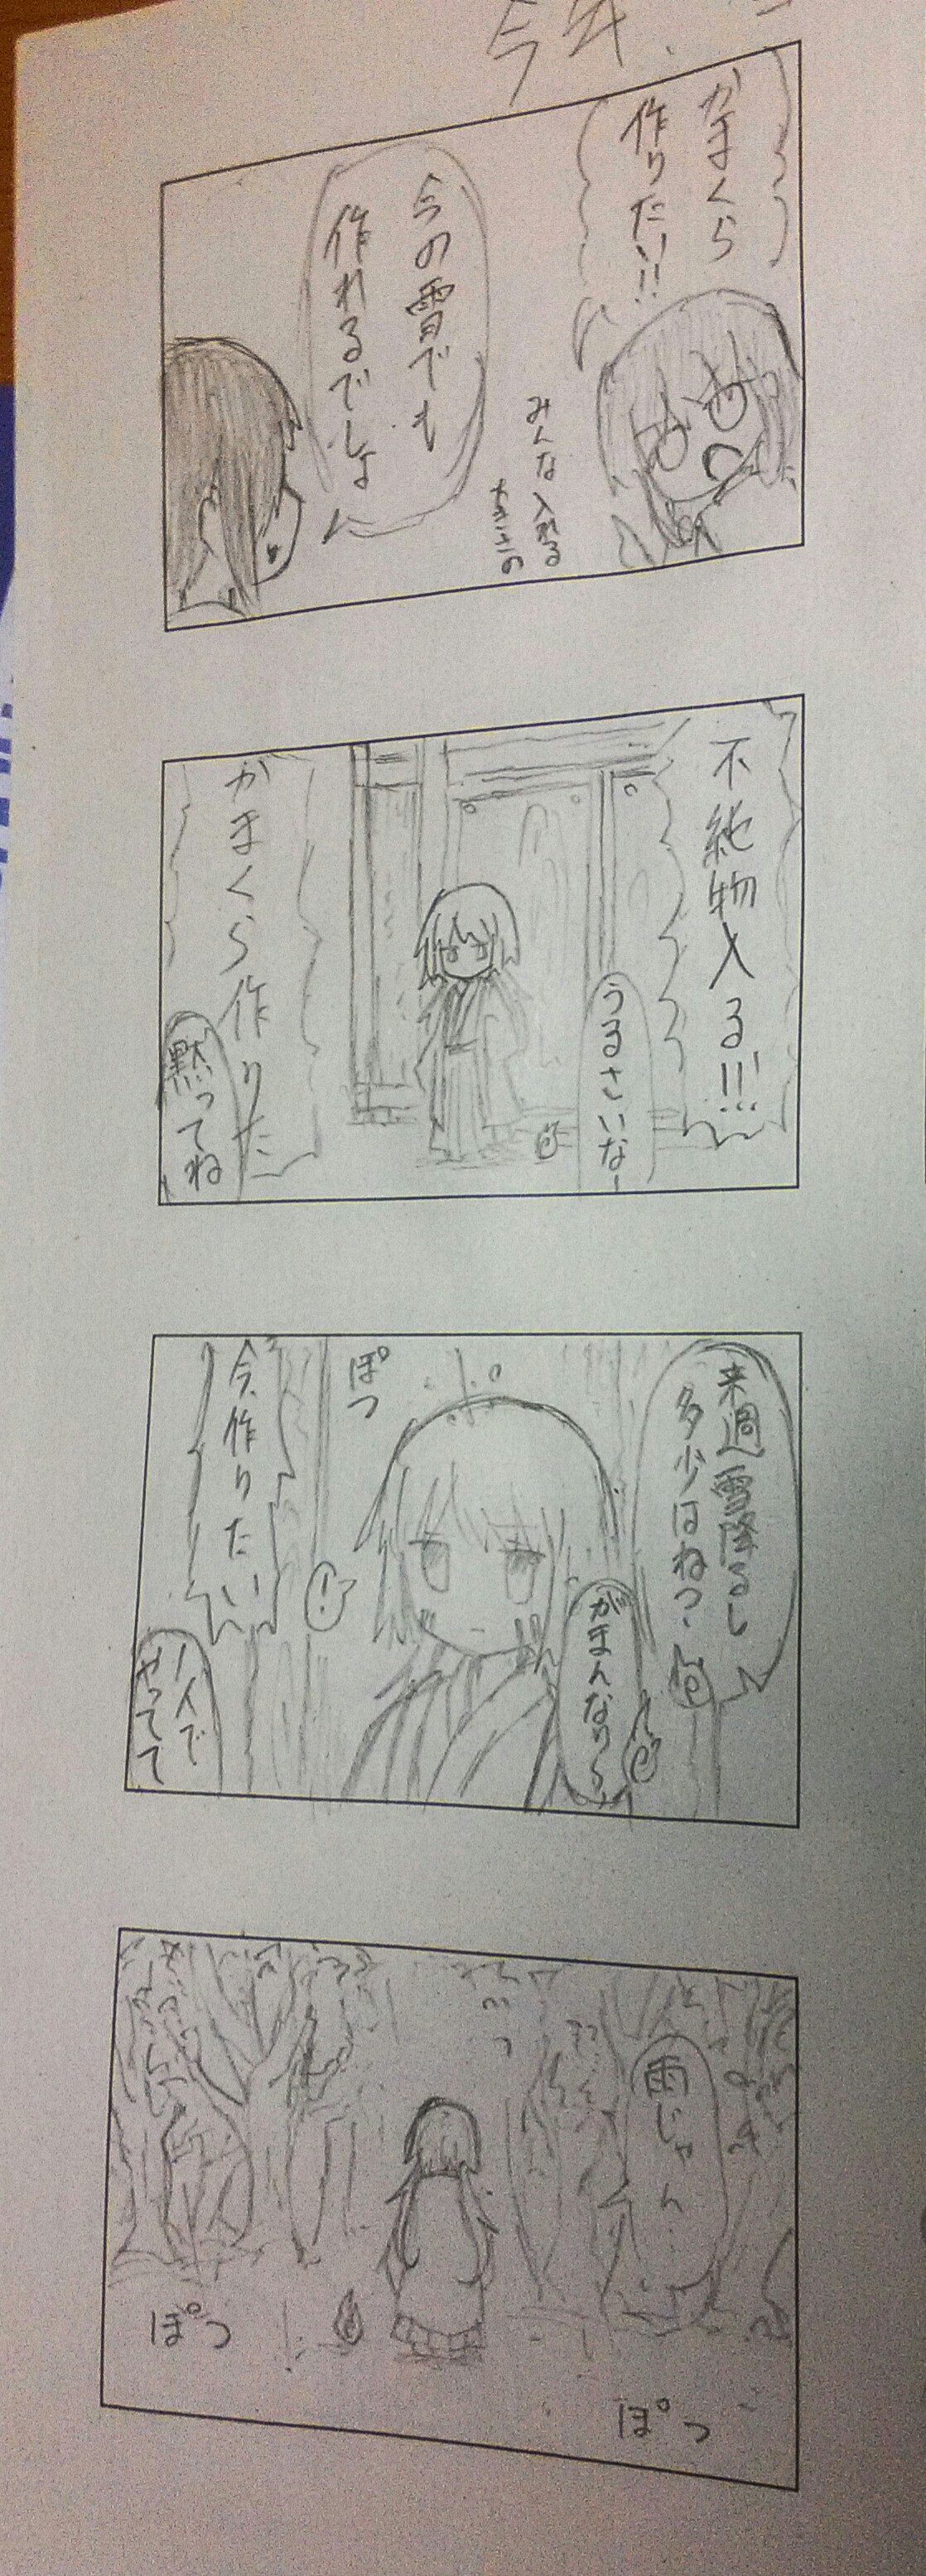 今年、
かまくら
作りたい!!
みんな入れる
大きいの
今の雪でも
作れるでしょ
不純物入る!!!
うるさいなー
かまくら作りた
黙ってね
来週雪降るし
多少はねっ
がまんなの〜
ぽつ
!
今、作りたい
1人で
やってて
雨じゃん
ぽつ
ぽつ